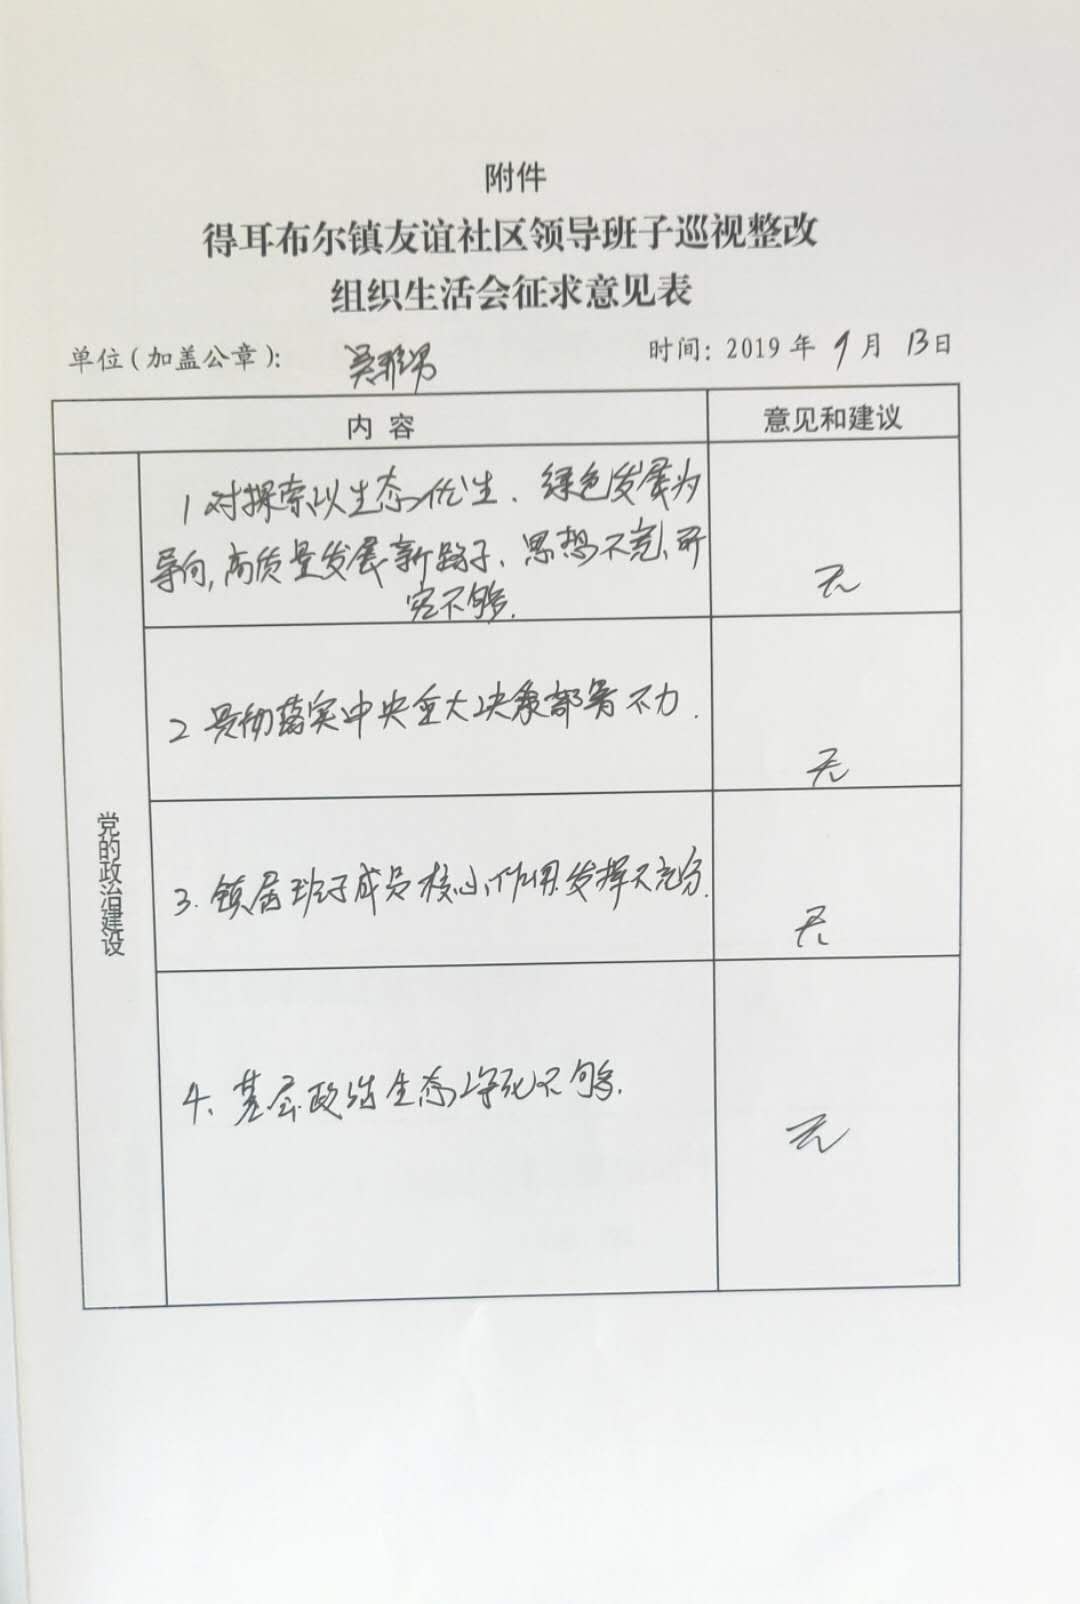 附件
得耳布尔镇友谊社区领导班子巡视整改
组织生活会征求意见表
单位(加盖公章): 吴雅男 时间: 2019 年 9 月 13 日
内 容 意见和建议
党的政治建设
1 对探索以生态优先、绿色发展为
导向,高质量发展新路子、思想不 研
究不够. 无
2 贯彻落实中央重大决策部署不力. 无
3. 镇 班子成员核心作用发挥不充分. 无
4、基层政治生态净化不够. 无